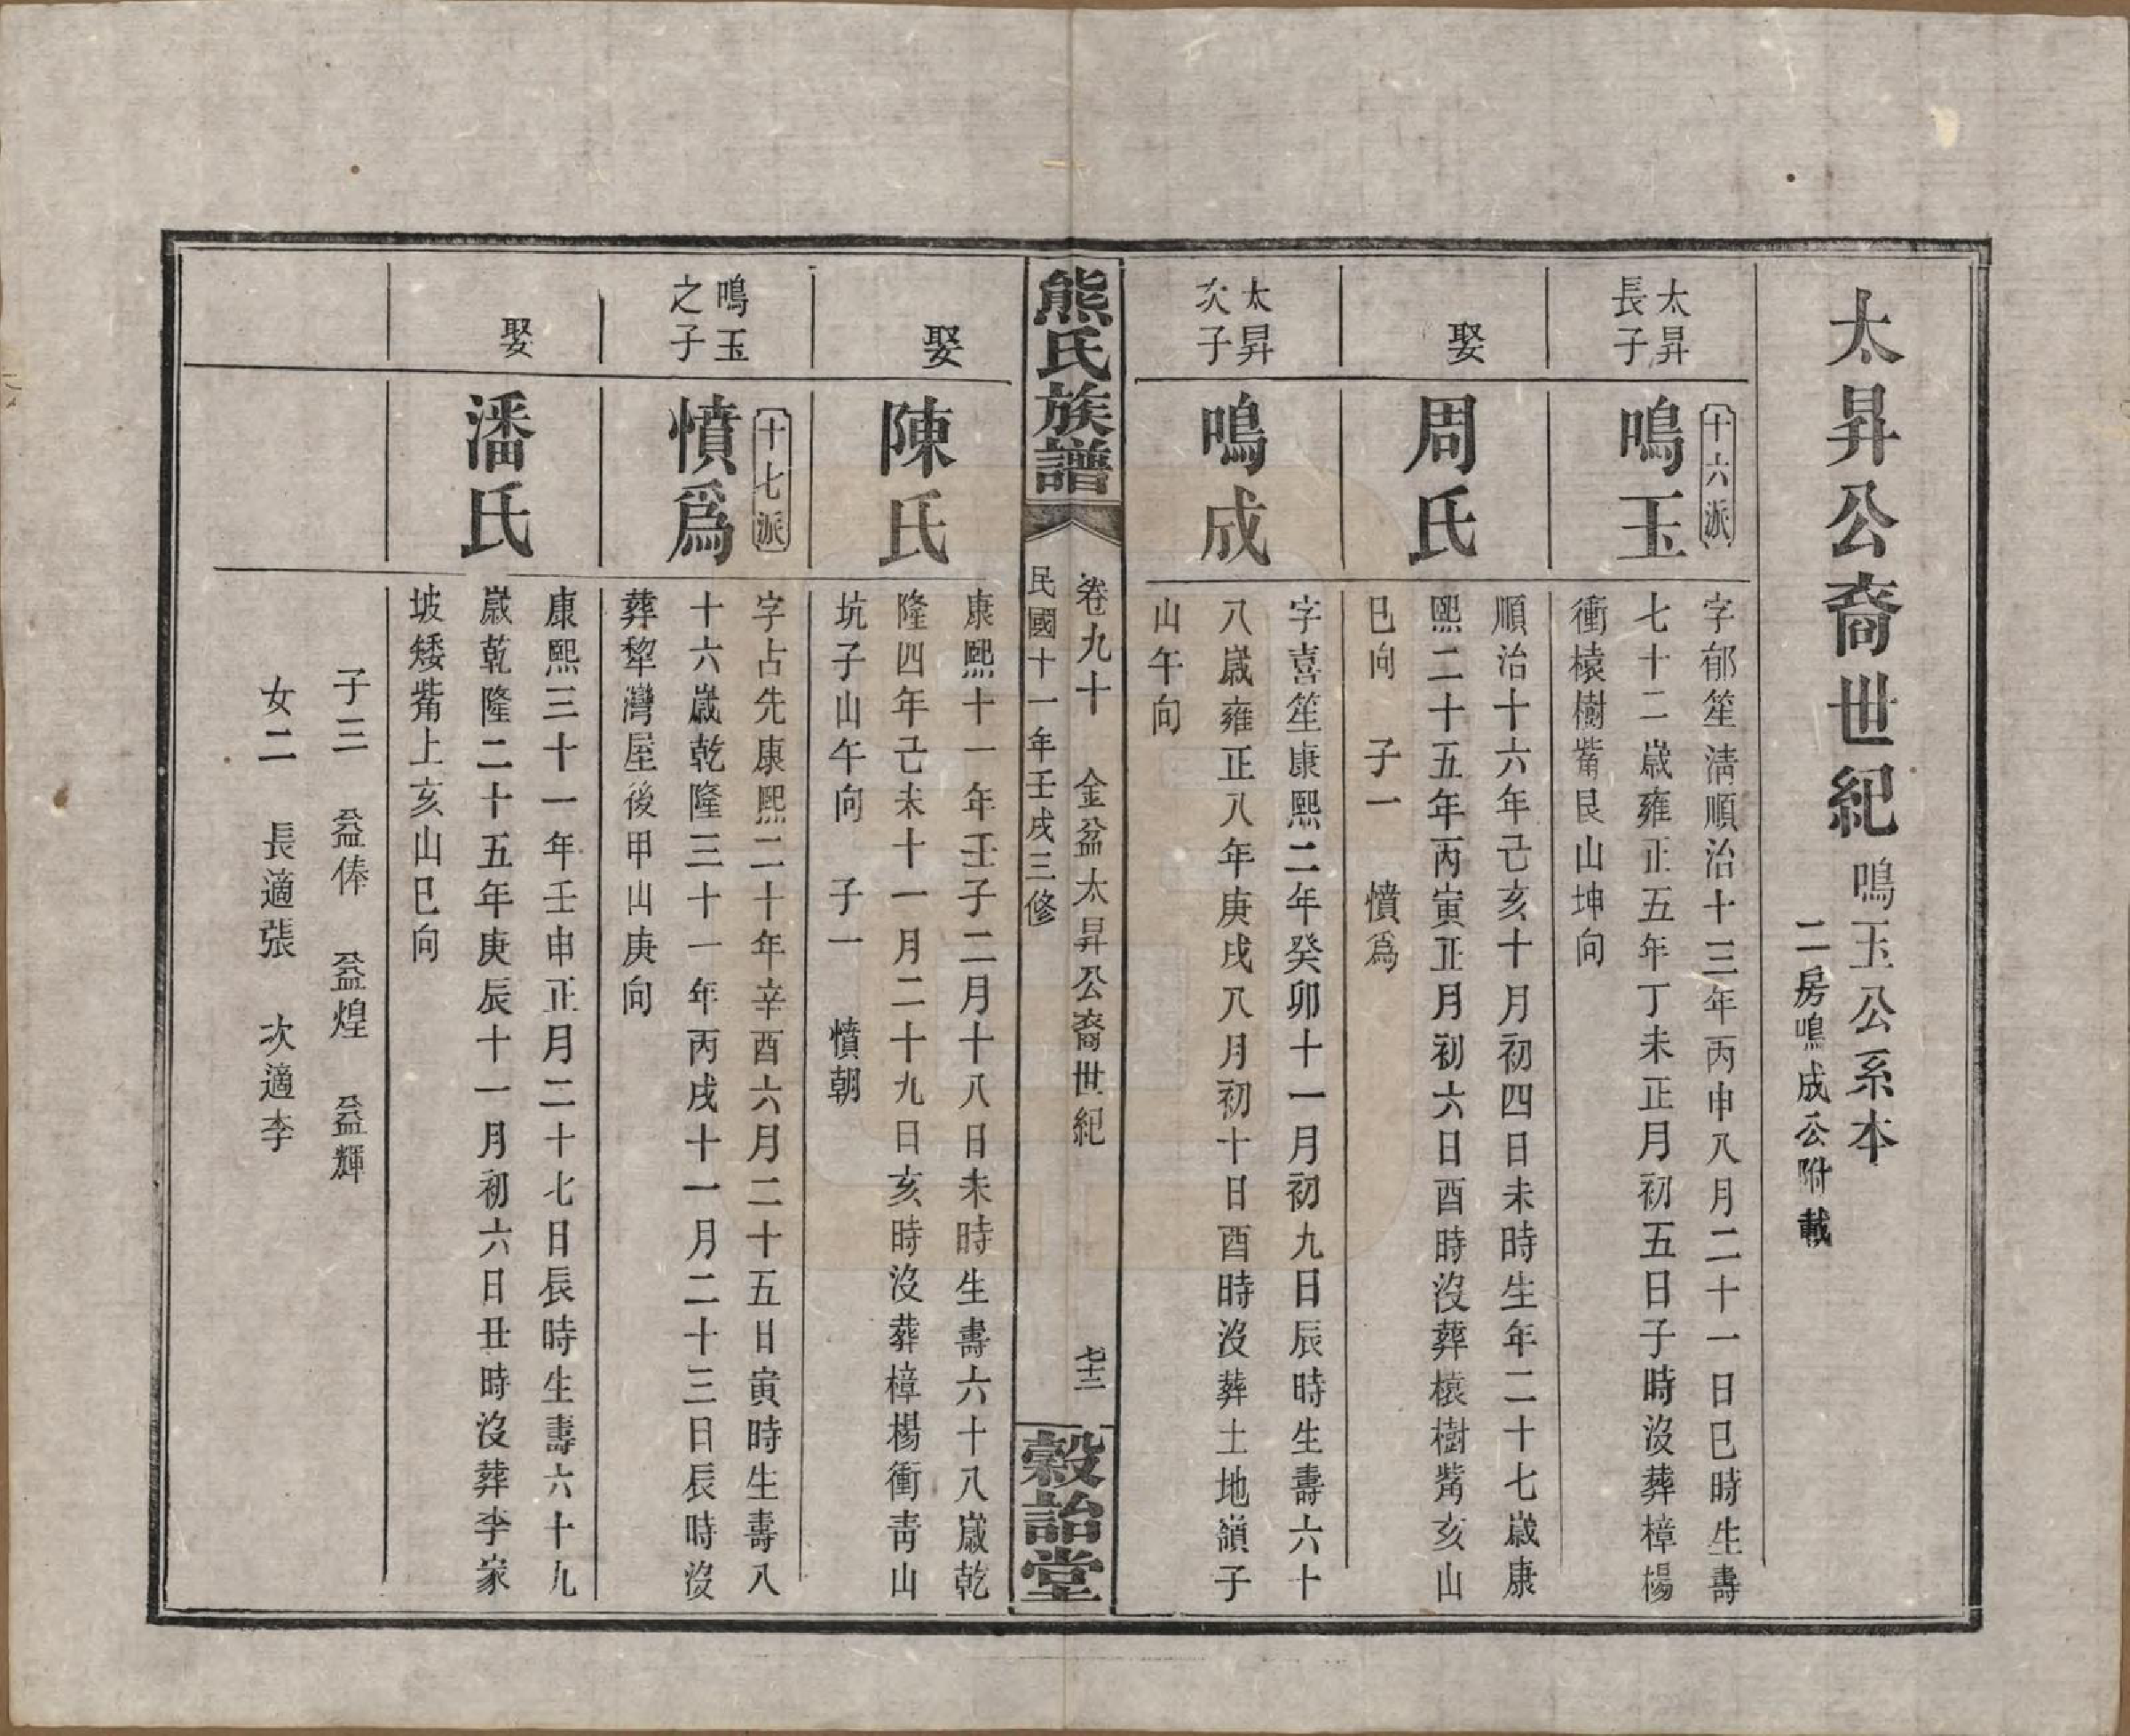 太昇公裔世紀
鳴玉公系本
二房鳴成公附載
太昇
長子
十六派
鳴玉
字郁笙淸順治十三年丙申八月二十一日巳時生壽
七十二歲雍正五年丁未正月初五日子時沒葬樟楊
衝榬樹觜艮山坤向
娶
周氏
順治十六年己亥十月初四日未時生年二十七歲康
熙二十五年丙寅正月初六日酉時沒葬榬樹觜亥山
巳向 子一 憤爲
太昇
次子
鳴成
字喜笙康熙二年癸卯十一月初九日辰時生壽六十
八歲雍正八年庚戌八月初十日酉時沒葬土地嶺子
山午向
熊氏族譜
卷九十 金盆太昇公裔世紀 七十二
民國十一年壬戌三修
穀詒堂
娶
陳氏
康熙十一年壬子二月十八日未時生壽六十八歲乾
隆四年己未十一月二十九日亥時沒葬樟楊衝靑山
坑子山午向 子一 憤朝
鳴玉
之子
十七派
憤爲
字占先康熙二十年辛酉六月二十五日寅時生壽八
十六歲乾隆三十一年丙戌十一月二十三日辰時沒
葬犂灣屋後甲山庚向
娶
潘氏
康熙三十一年壬申正月二十七日辰時生壽六十九
歲乾隆二十五年庚辰十一月初六日丑時沒葬李家
坡矮觜上亥山巳向
子三 益俸 益煌 益輝
女二 長適張 次適李